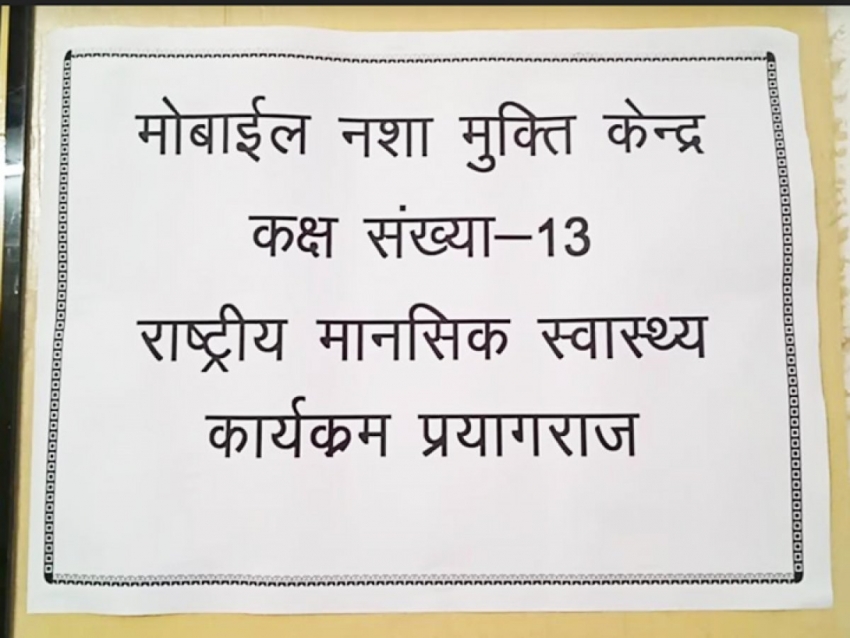 मोबाईल नशा मुक्ति केन्द्र
कक्ष संख्या–13
राष्ट्रीय मानसिक स्वास्थ्य
कार्यक्रम प्रयागराज